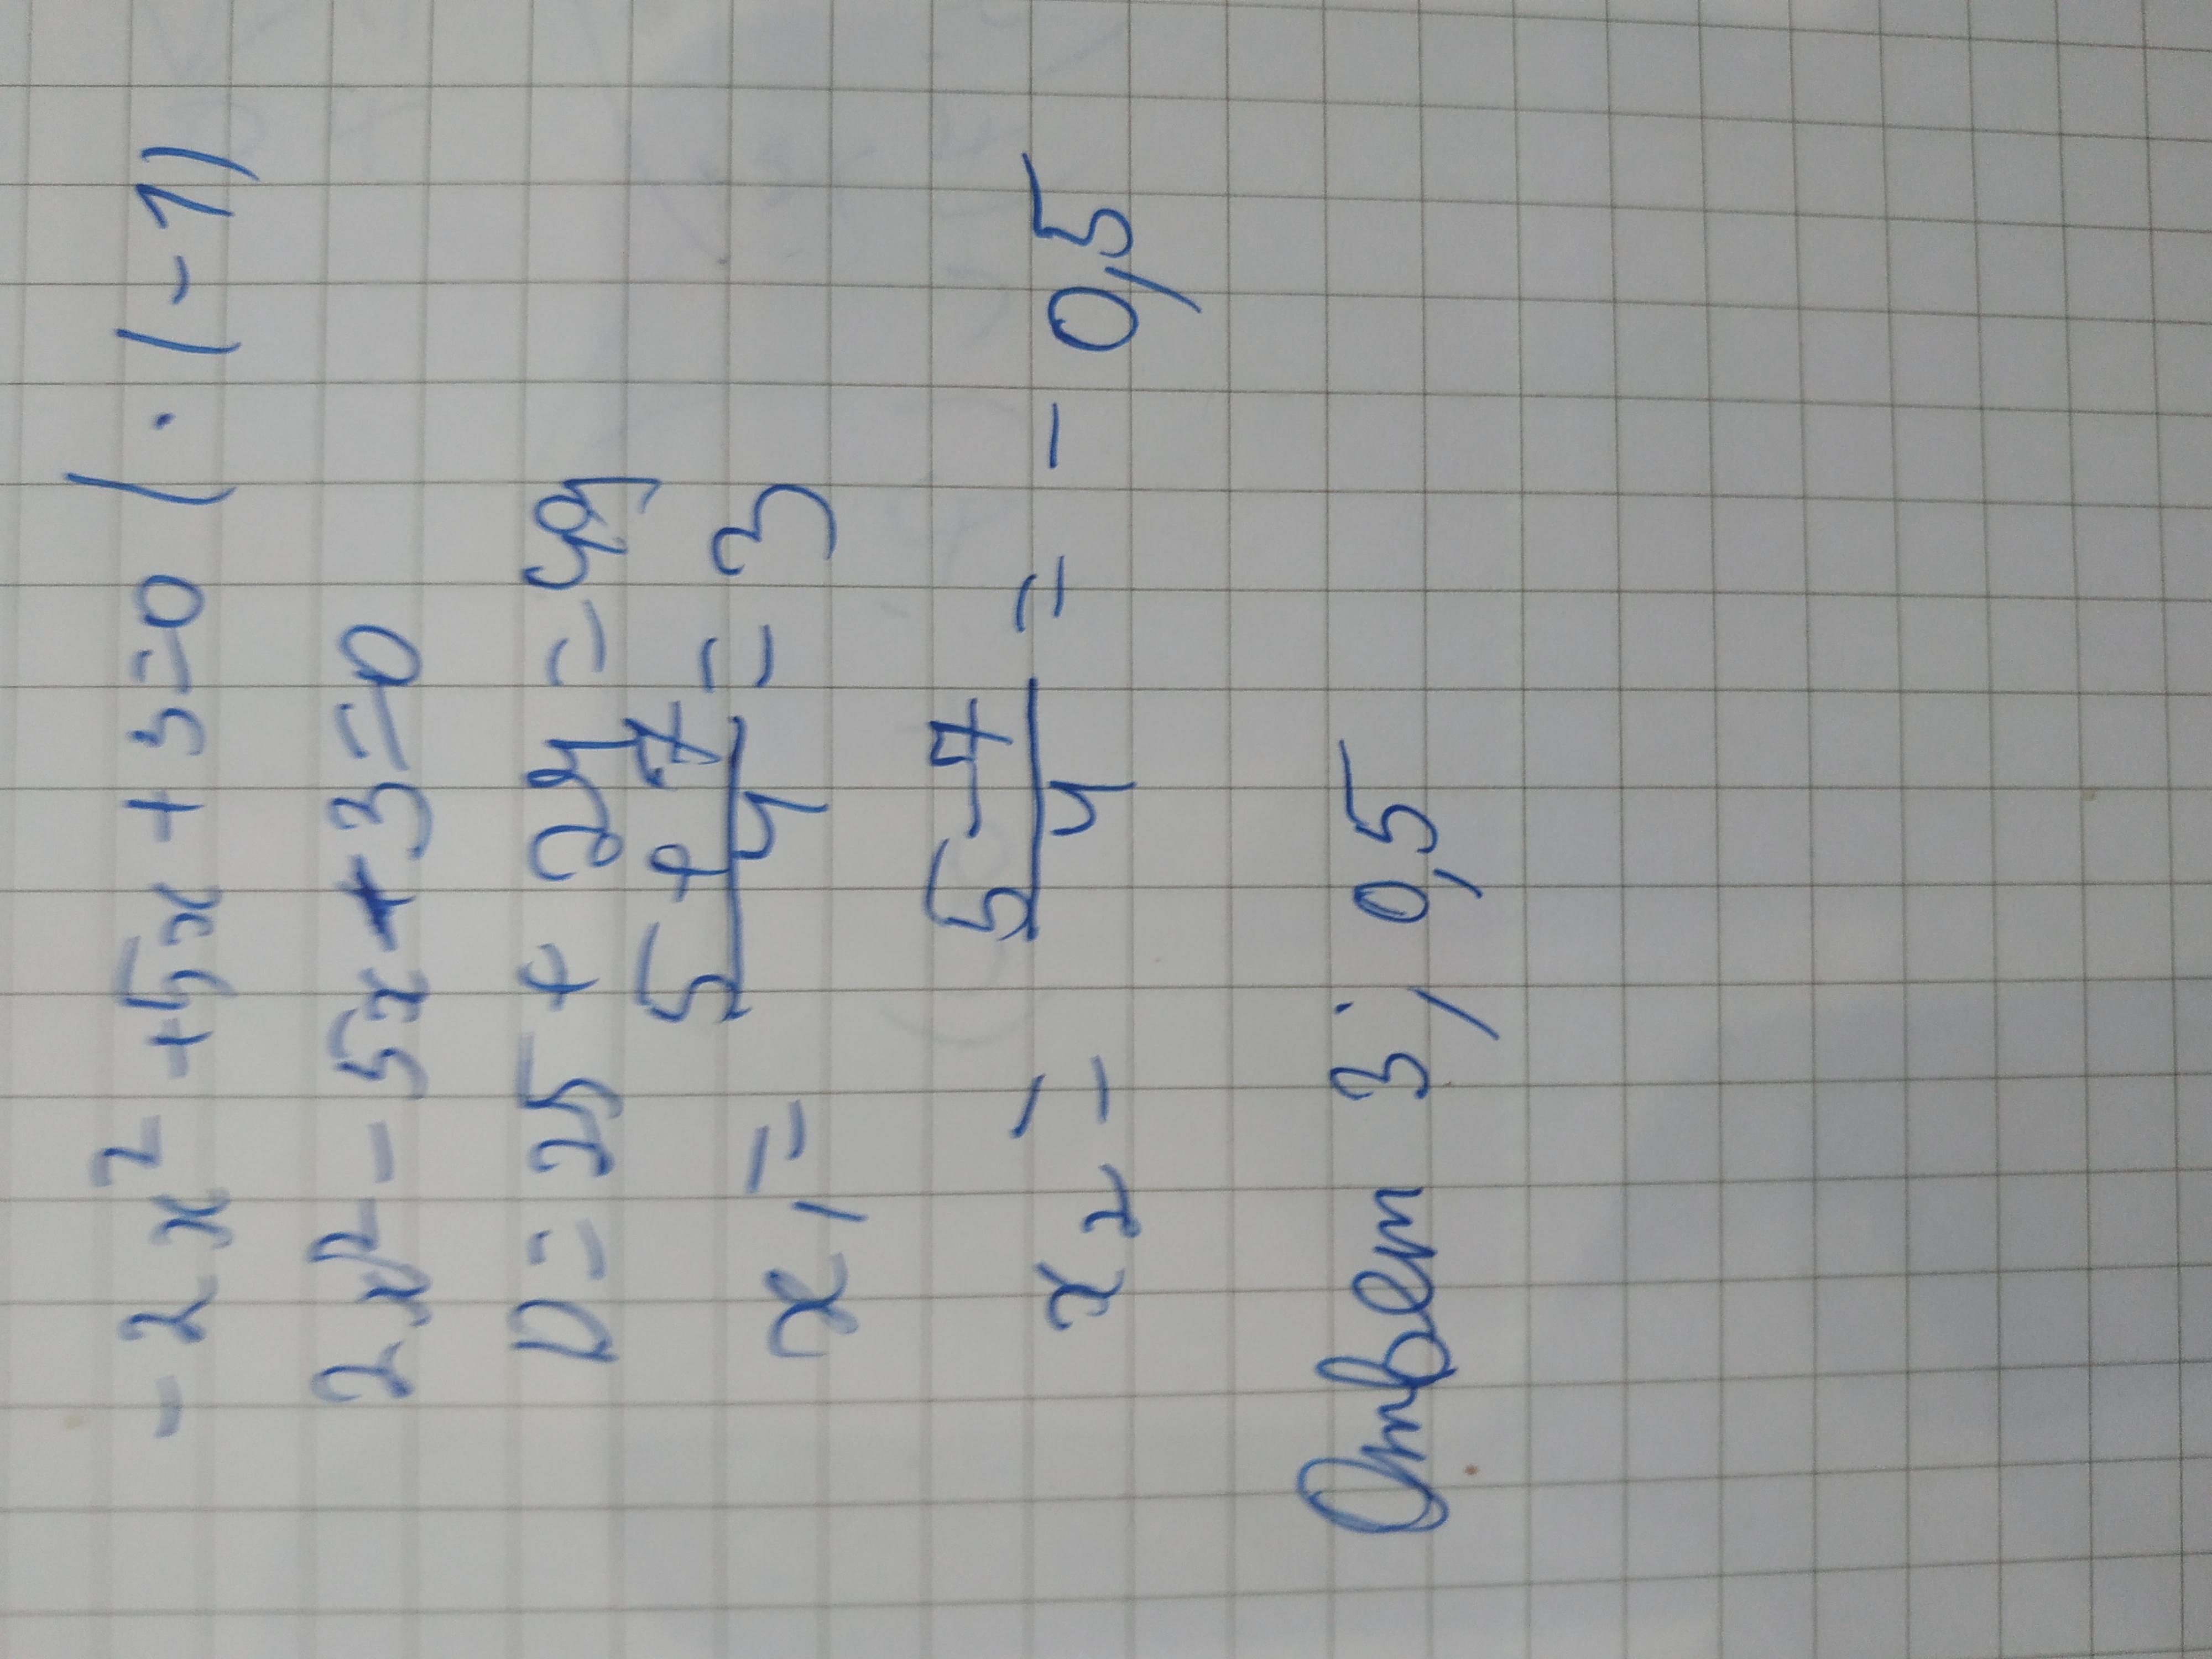 -2x² +5x +3=0 | · (-1)
2x² - 5x + 3=0
D = 25 + 24 = 49
x₁ = \frac{5+7}{4} = 3
x₂ = \frac{5-7}{4} = -0,5
Ответ 3; 0,5